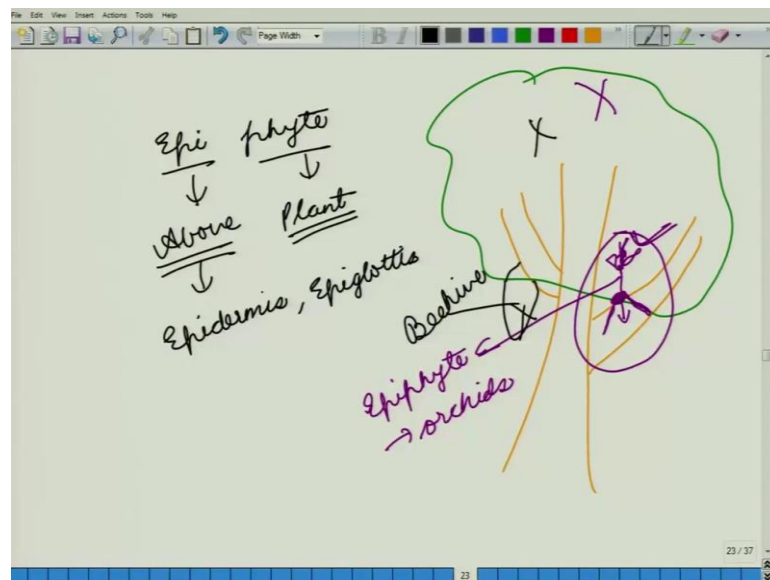 File Edit View Insert Actions Tools Help
Page Width
B I
Epi phyte
Above Plant
Epidermis, Epiglottis
Beehive
Epiphyte
→ orchids
X
X
X
23 / 37
23